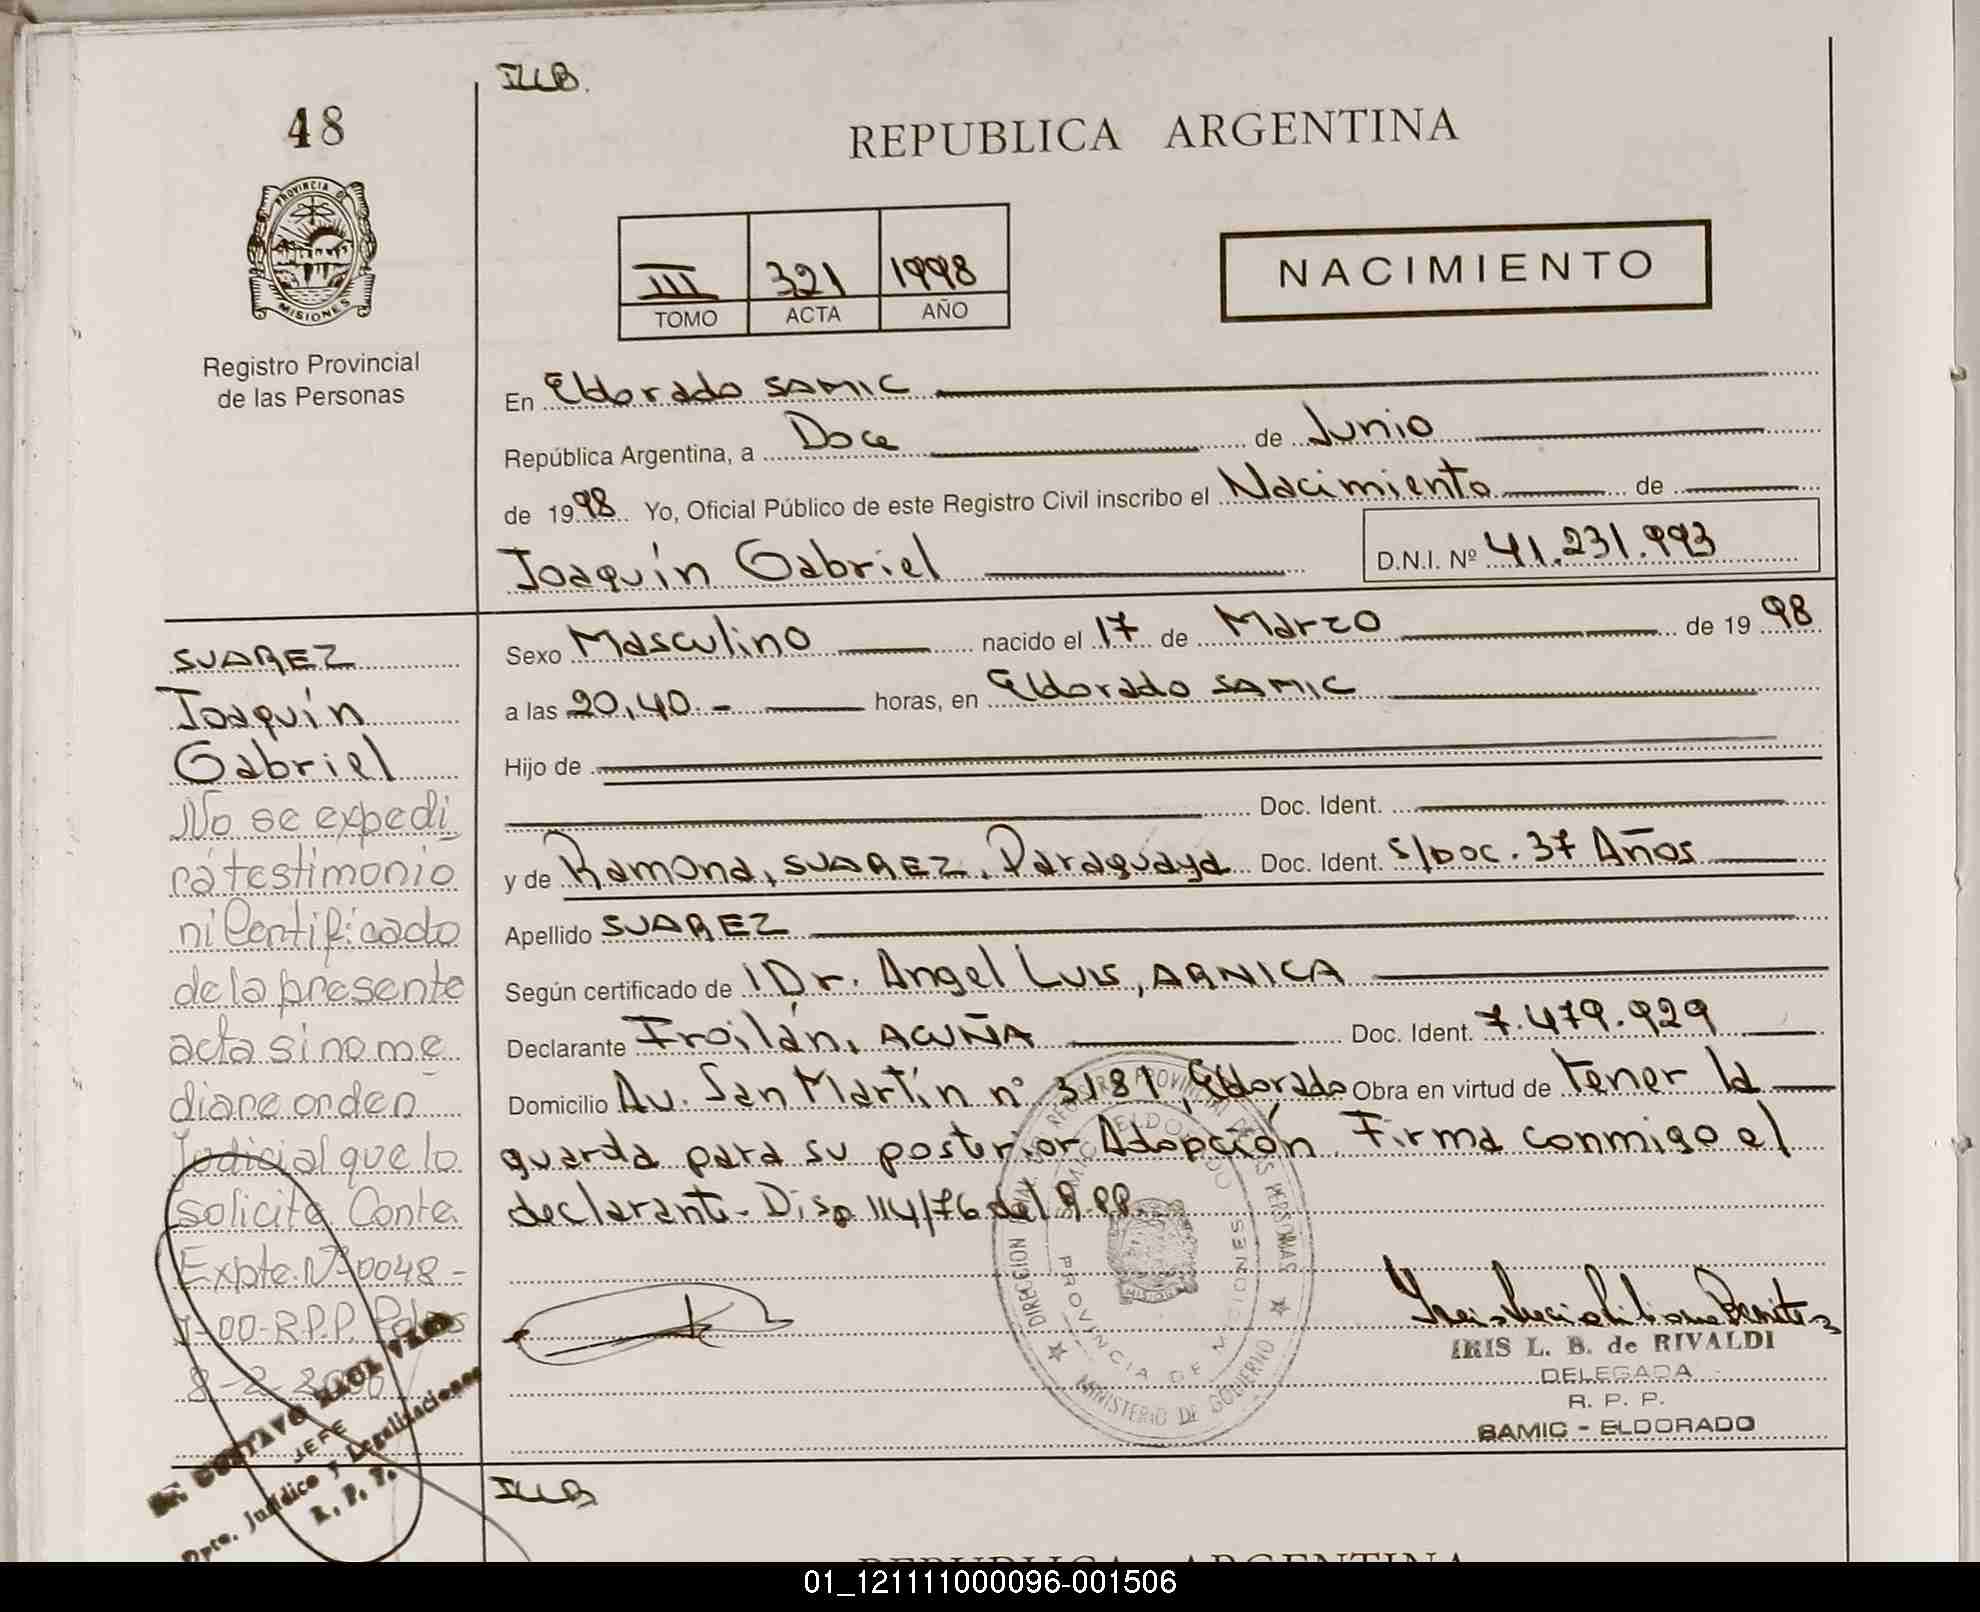 ILLB.
48
REPUBLICA ARGENTINA
PROVINCIA DE
MISIONES
III 321 1998
TOMO ACTA AÑO
NACIMIENTO
Registro Provincial
de las Personas
En Eldorado SAMIC
República Argentina, a Doce de Junio
de 1998 Yo, Oficial Público de este Registro Civil inscribo el Nacimiento de
Joaquín Gabriel D.N.I. Nº 41.231.993
SUAREZ
Joaquín
Gabriel
No se expedi
rá testimonio
ni Certificado
de la presente
acta si no me
diare orden
Judicial que lo
solicite Conte.
Expte. Nº 0048-
I-00-R.P.P. Pdas
8-2-2000
Dr. GUSTAVO RAUL VERA
JEFE
Dpto. Jurídico y Legalizaciones
R. P. P.
Sexo Masculino nacido el 17 de Marzo de 1998
a las 20,40 - horas, en Eldorado SAMIC
Hijo de
Doc. Ident.
y de Ramona, SUAREZ, Paraguaya Doc. Ident. S/DOC. 37 Años
Apellido SUAREZ
Según certificado de Dr. Angel Luis, ARNICA
Declarante Froilán, ACUÑA Doc. Ident. 7.479.929
Domicilio Av. San Martín nº 3181, Eldorado Obra en virtud de tener la
guarda para su posterior Adopción. Firma conmigo el
declarante. Disp 114/76 del R.PP.
DIRECCION GRAL. DEL REGISTRO PROVINCIAL DE LAS PERSONAS
SAMIC ELDORADO
PROVINCIA DE MISIONES
MINISTERIO DE GOBIERNO
MISIONES
IRIS L. B. de RIVALDI
DELEGADA
R. P. P.
SAMIC - ELDORADO
ILLB
REPUBLICA ARGENTINA
01_121111000096-001506